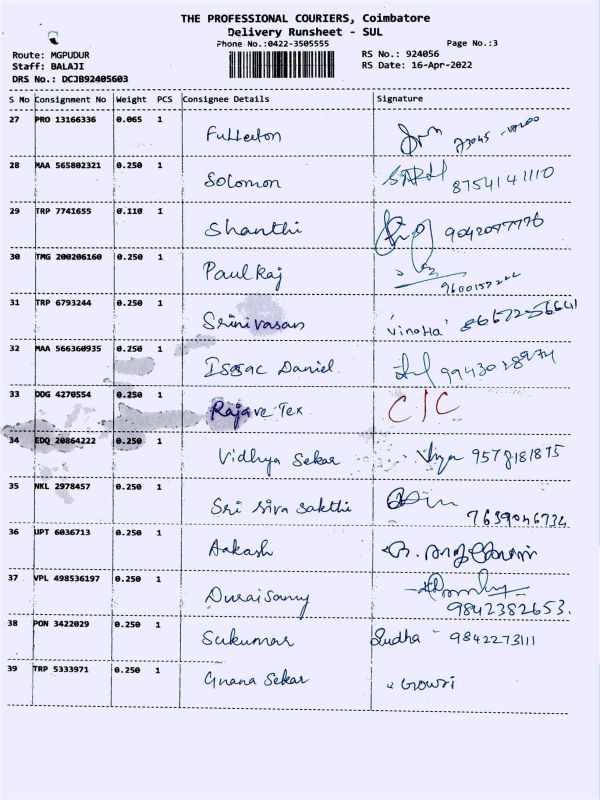 THE PROFESSIONAL COURIERS, Coimbatore
Delivery Runsheet - SUL
Phone No.:0422-3505555 Page No.:3
Route: MGPUDUR RS No.: 924056
Staff: BALAJI RS Date: 16-Apr-2022
DRS No.: DCJB92405603
S No Consignment No Weight PCS Consignee Details Signature
27 PRO 13166336 0.065 1 Fullerton
28 MAA 565802321 0.250 1 Solomon 8754141110
29 TRP 7741655 0.110 1 Shanthi
30 TMG 200206160 0.250 1 Paulraj
31 TRP 6793244 0.250 1 Srinivasan
32 MAA 566360935 0.250 1 Issac Daniel
33 DDG 4270554 0.250 1 Rajave Tex C/C
34 EDQ 20864222 0.250 1 Vidhya Sekar 9578181875
35 NKL 2978457 0.250 1 Sri siva sakthi 7639046734
36 UPT 6036713 0.250 1 Aakash
37 VPL 498536197 0.250 1 Duraisamy 9842382653.
38 PON 3422029 0.250 1 Sukumar Sudha - 9842273111
39 TRP 5333971 0.250 1 Gnana Sekar Gowri